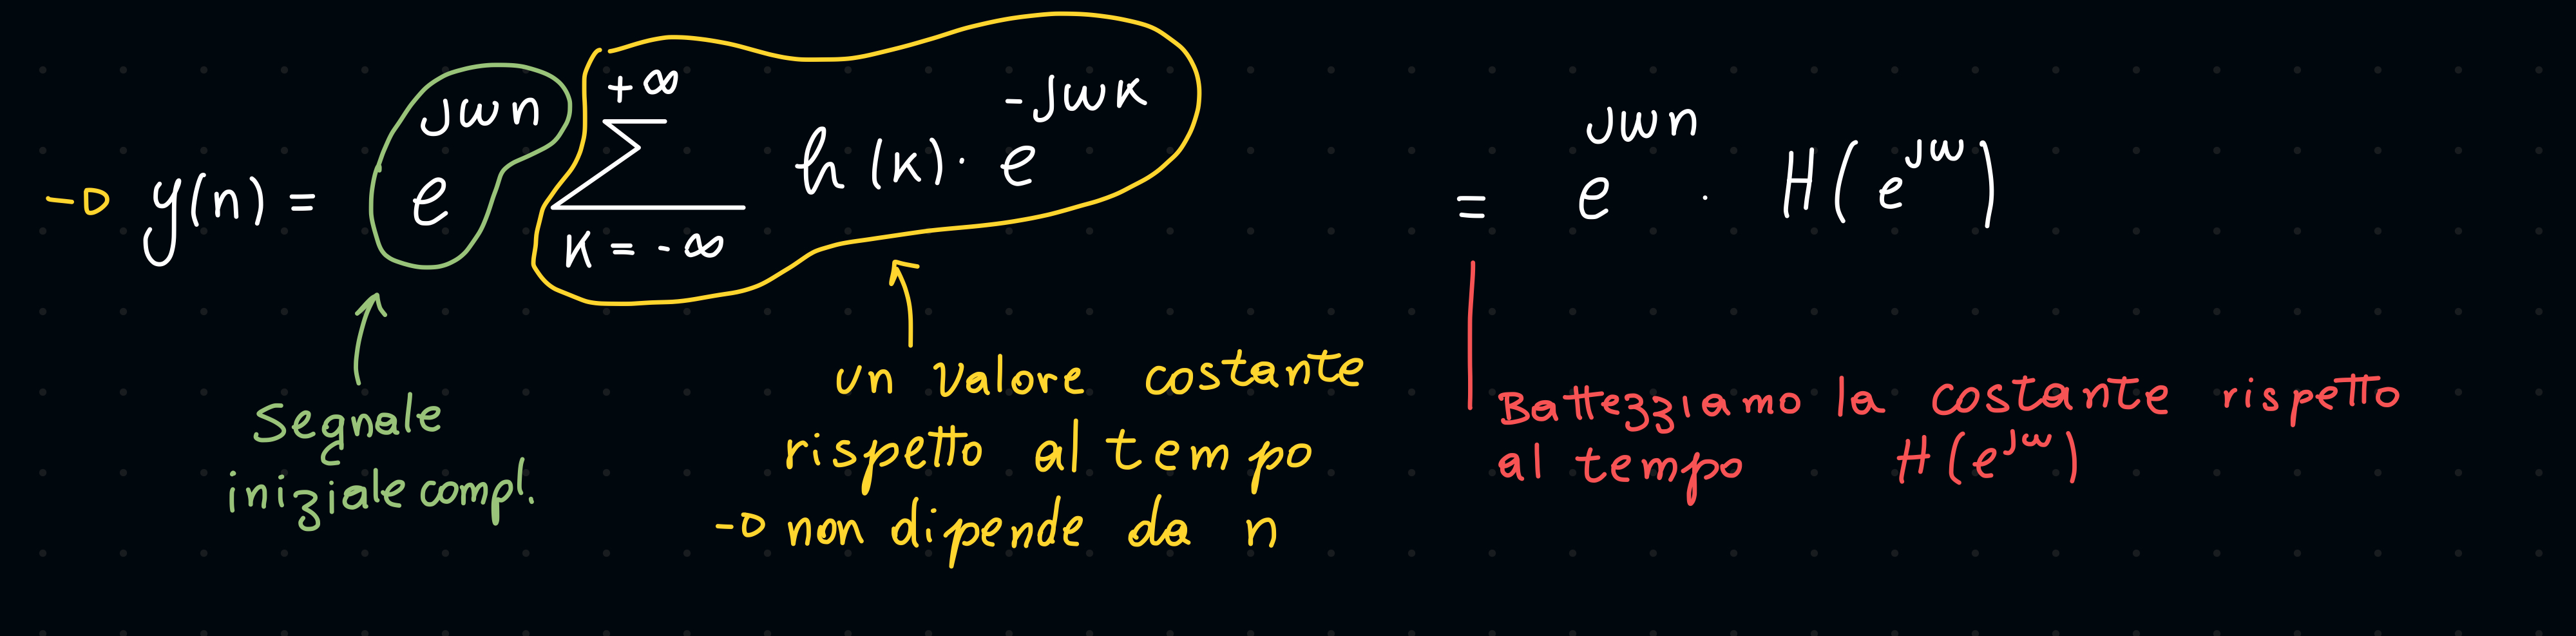 → y(n) = e^{jωn} ∑_{k=-∞}^{+∞} h(k)· e^{-jωk} = e^{jωn} · H(e^{jω})
Segnale
iniziale compl.
un valore costante
rispetto al tempo
→ non dipende da n
Battezziamo la costante rispetto
al tempo H(e^{jω})